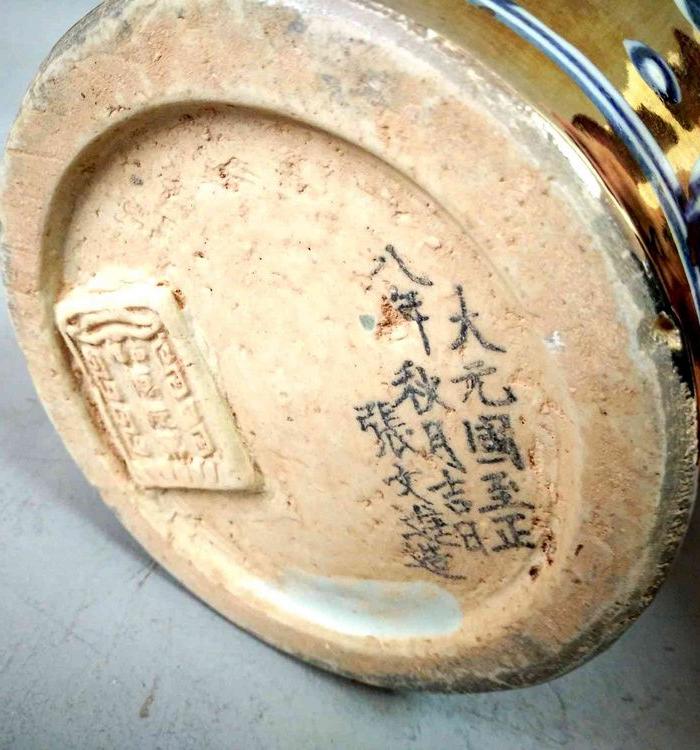 大元國至正
八年秋月吉日
張文進